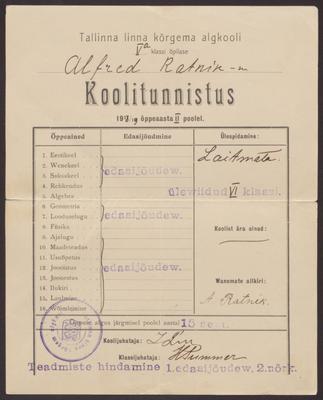 Tallinna linna kõrgema algkooli
Vª klassi õpilase
Alfred Ratnik-u
Koolitunnistus
õppeaasta II poolel.
Õppeained Edasijõudmine Ülespidamine:
1. Eestikeel
2. Wenekeel
3. Saksakeel
4. Rehkendus
5. Algebra
6. Geometria
7. Looduselugu
8. Füsika
9. Ajalugu
10. Maadeteadus
11. Usuõpetus
12. Joonistus
13. Joonestus
14. Ilukiri
15. Laulmine
16. Wõimlemine
edasijõudew.
edasijõudew.
edasijõudew.
Laitmata.
ülewiidud VI klassi.
Koolist ära olnud:
Wanemate allkiri:
A. Ratnik.
Õppetöö algus järgmisel poolel aastal 15 sept.
Koolijuhataja:
Klassijuhataja: Pummer
Teadmiste hindamine 1.edasijõudew, 2.nõrk.